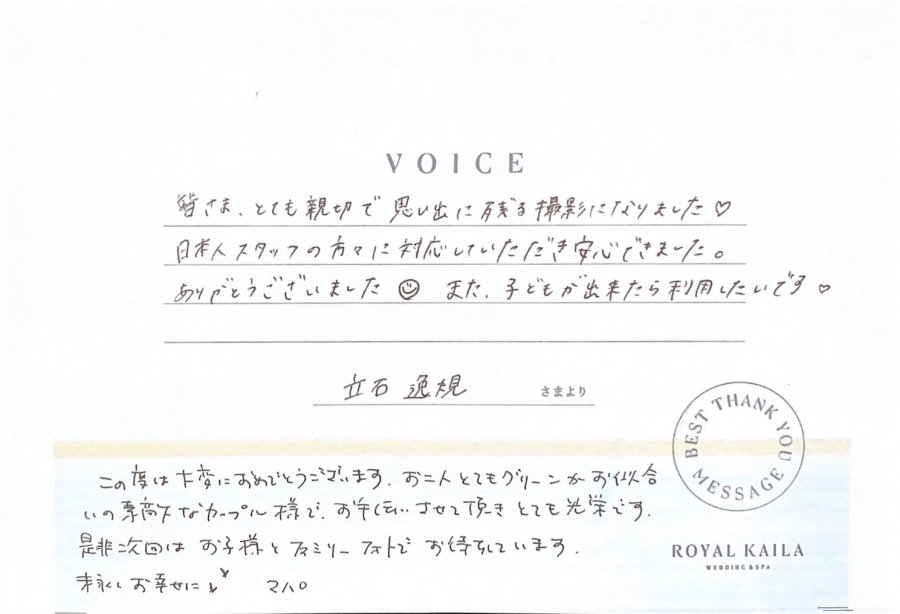 VOICE
皆さま、とても親切で思い出に残る撮影になりました♡
日本人スタッフの方々に対応していただき安心できました。
ありがとうございました☺ また、子どもが出来たら利用したいです♡
立石 逸規 さまより
BEST THANK YOU MESSAGE
この度は大変におめでとうございます。お二人とてもグリーンがお似合
いの素敵なカップル様で、お手伝いさせて頂きとても光栄です。
是非次回はお子様とファミリーフォトでお待ちしています。
末永くお幸せに♡ マハロ
ROYAL KAILA
WEDDING & SPA